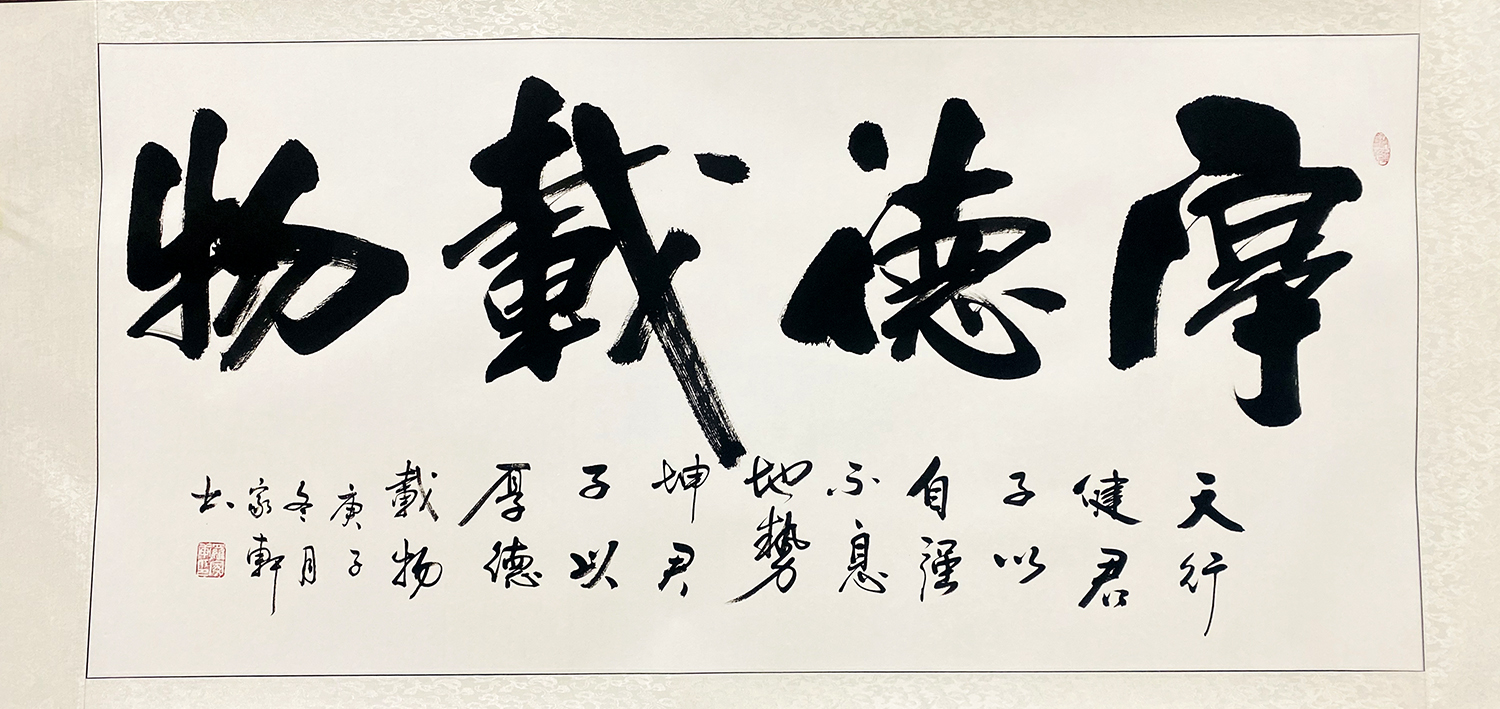 厚德載物
天行
健君
子以
自強
不息
地勢
坤君
子以
厚德
載物
庚子
冬月
家軒
书